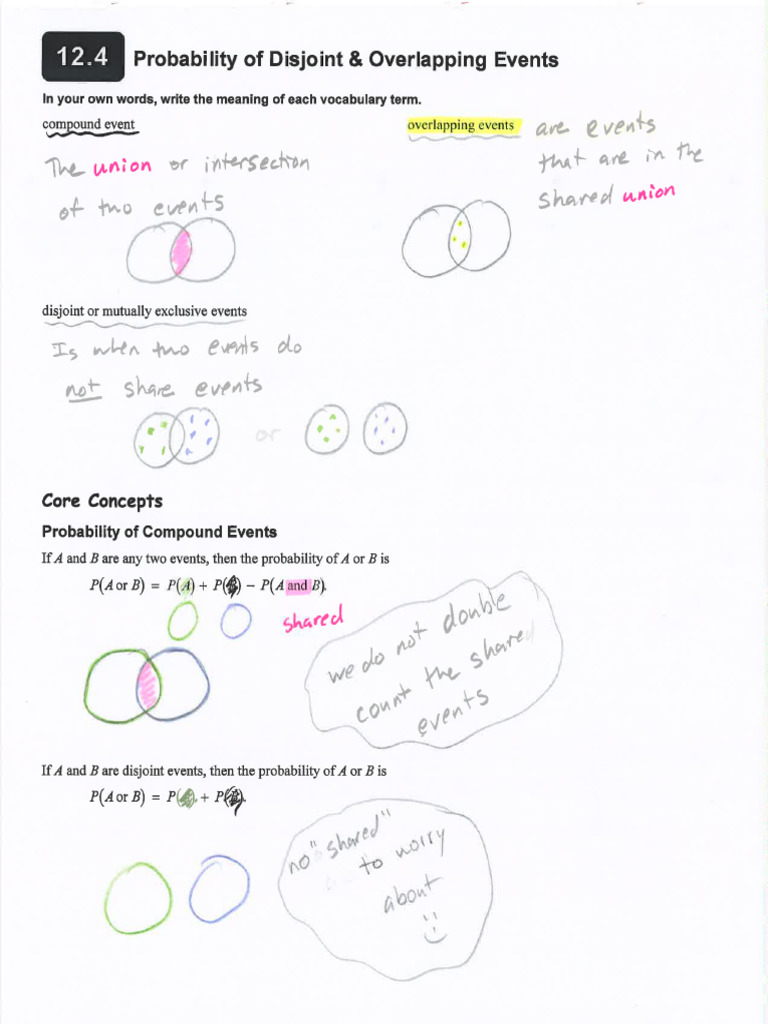 12.4 Probability of Disjoint & Overlapping Events
In your own words, write the meaning of each vocabulary term.
compound event
The union or intersection
of two events
overlapping events are events
that are in the
shared union
disjoint or mutually exclusive events
Is when two events do
not share events
or
Core Concepts
Probability of Compound Events
If A and B are any two events, then the probability of A or B is
P(A or B) = P(A) + P(B) − P(A and B).
shared
we do not double
count the shared
events
If A and B are disjoint events, then the probability of A or B is
P(A or B) = P(A) + P(B).
no "shared"
to worry
about